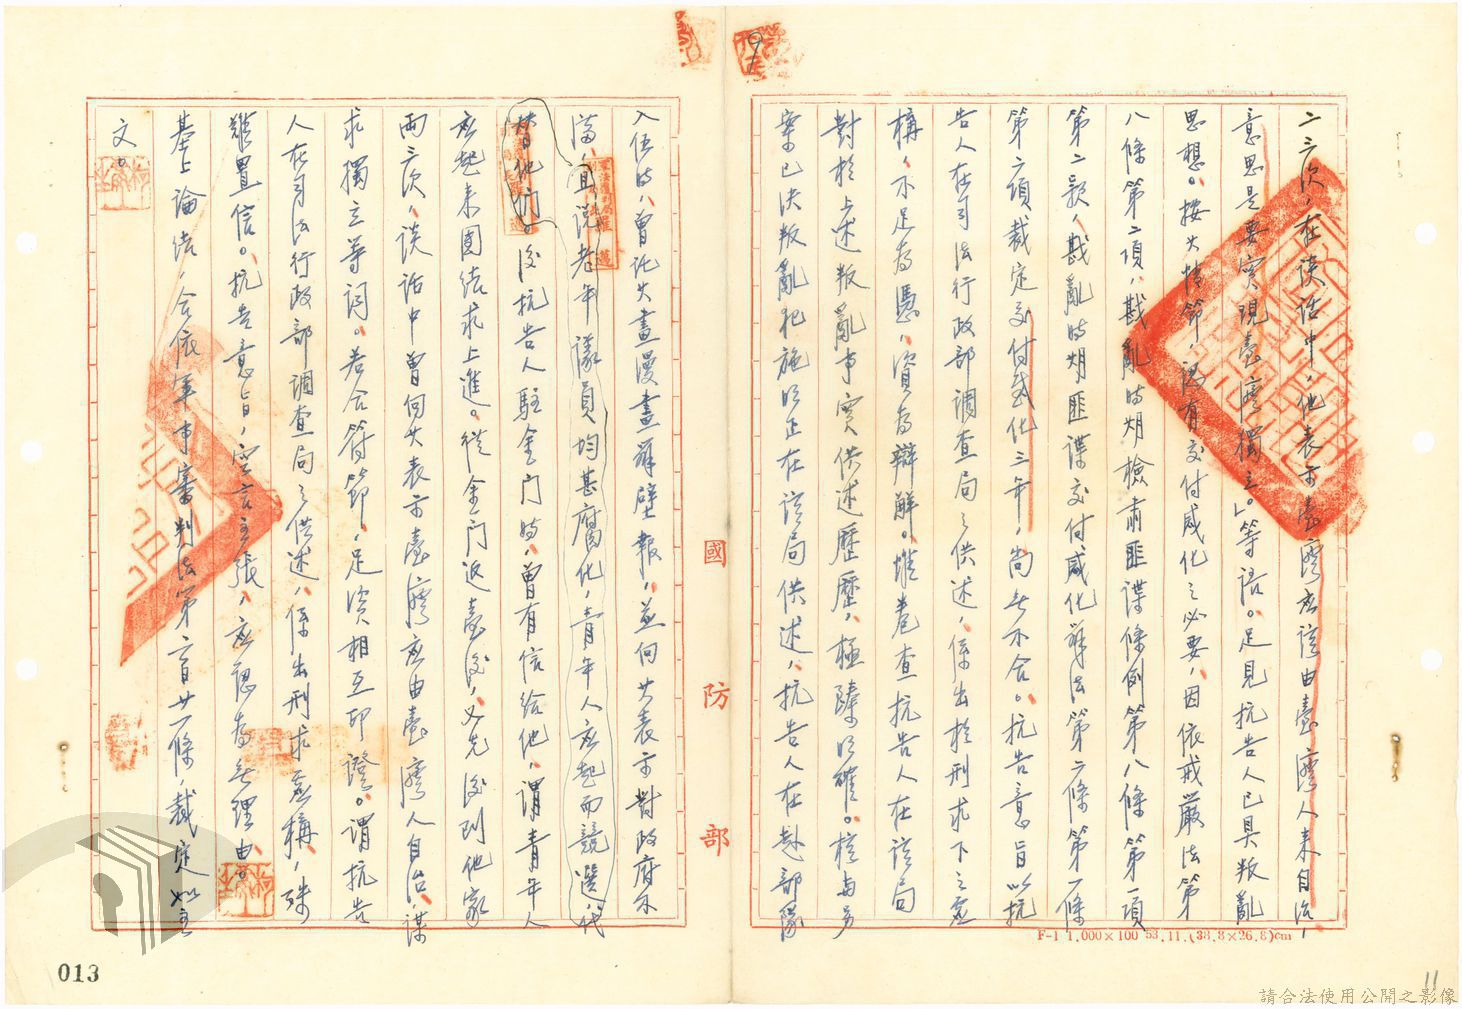 二三次，在談話中，他表示臺灣應該由臺灣人來自治，
意思是要實現臺灣獨立。」等語。足見抗告人已具叛亂
思想。按其情節，認有交付感化之必要，因依戒嚴法第
八條第二項，戡亂時期檢肅匪諜條例第八條第一項
第二款，戡亂時期匪諜交付感化辦法第二條第一條
第二項裁定交付感化三年，尚無不合。抗告意旨以抗
告人在司法行政部調查局之供述，係出於刑求下之虛
構，不足為憑，資為辯解。惟卷查抗告人在該局
對於上述叛亂事實供述歷歷，極臻明確。核與另
案已決叛亂犯施明正在該局供述，抗告人在赴部隊
入伍時，曾託其畫漫畫辦壁報，並向其表示對政府不
滿，且說老年議員均甚腐化，青年人應起而競選，代
替他們。後抗告人駐金門時，曾有信給他，謂青年人
應起來團結求上進。從金門返臺後，又先後到他家
兩三次，談話中曾向其表示臺灣應由臺灣人自治，謀
求獨立等詞。若合符節，足資相互印證。謂抗告
人在司法行政部調查局之供述，係出刑求虛構，殊
難置信。抗告意旨，空言主張，應認為無理由。
基上論結，合依軍事審判法第二百廿一條，裁定如主
文。
國防部
F-1 1,000×100 53.11.(38.8×26.8)cm
013
9
11
請合法使用公開之影像